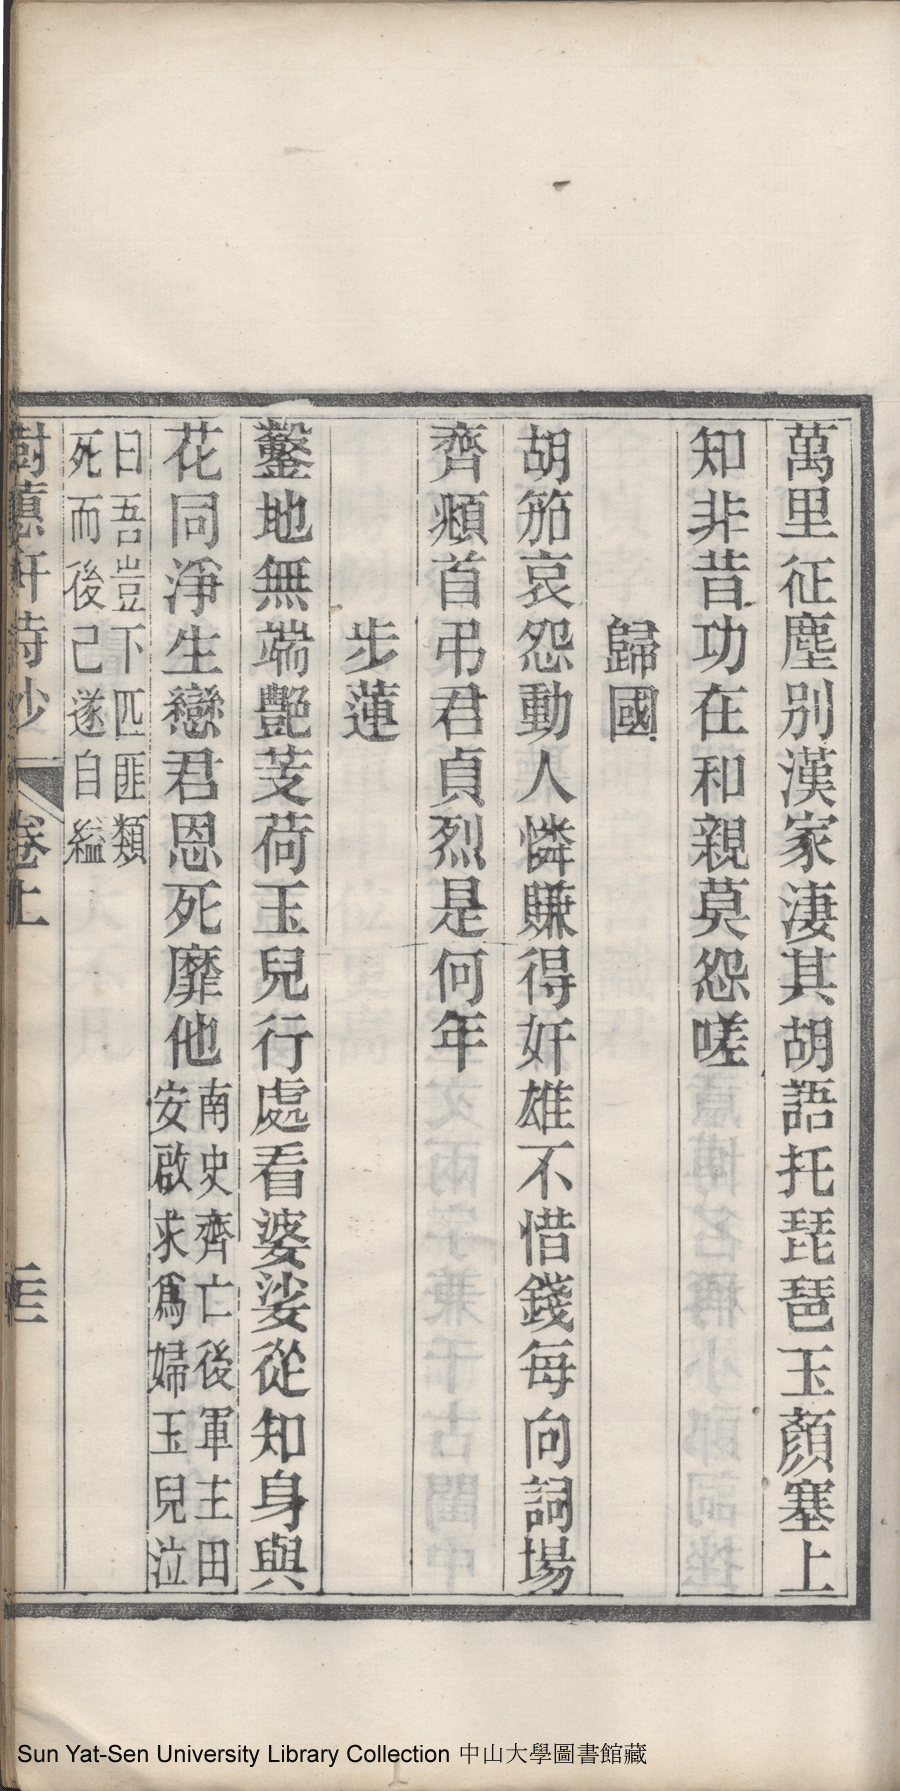 萬里征塵別漢家淒其胡語托琵琶玉顏塞上
知非昔功在和親莫怨嗟
歸國
胡笳哀怨動人憐賺得奸雄不惜錢每向詞場
齊頫首弔君貞烈是何年
步蓮
鑿地無端艷芰荷玉兒行處看婆娑從知身與
花同淨生戀君恩死靡他
南史齊亡後軍主田
安啟求爲婦玉兒泣
曰吾豈下匹匪類
死而後己遂自縊
樹蕙軒詩鈔 卷上
Sun Yat-Sen University Library Collection 中山大學圖書館藏